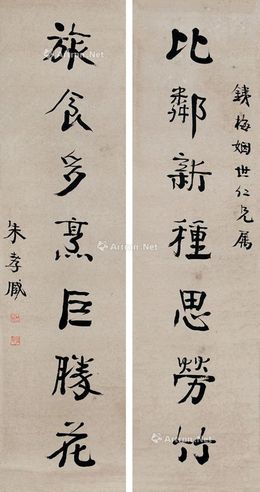 錢梅姻世仁兄属
比鄰新種思勞竹
旅食多烹巨勝花
朱孝臧
Artron.Net
Artron.Net
Artron.Net
Artron.Net